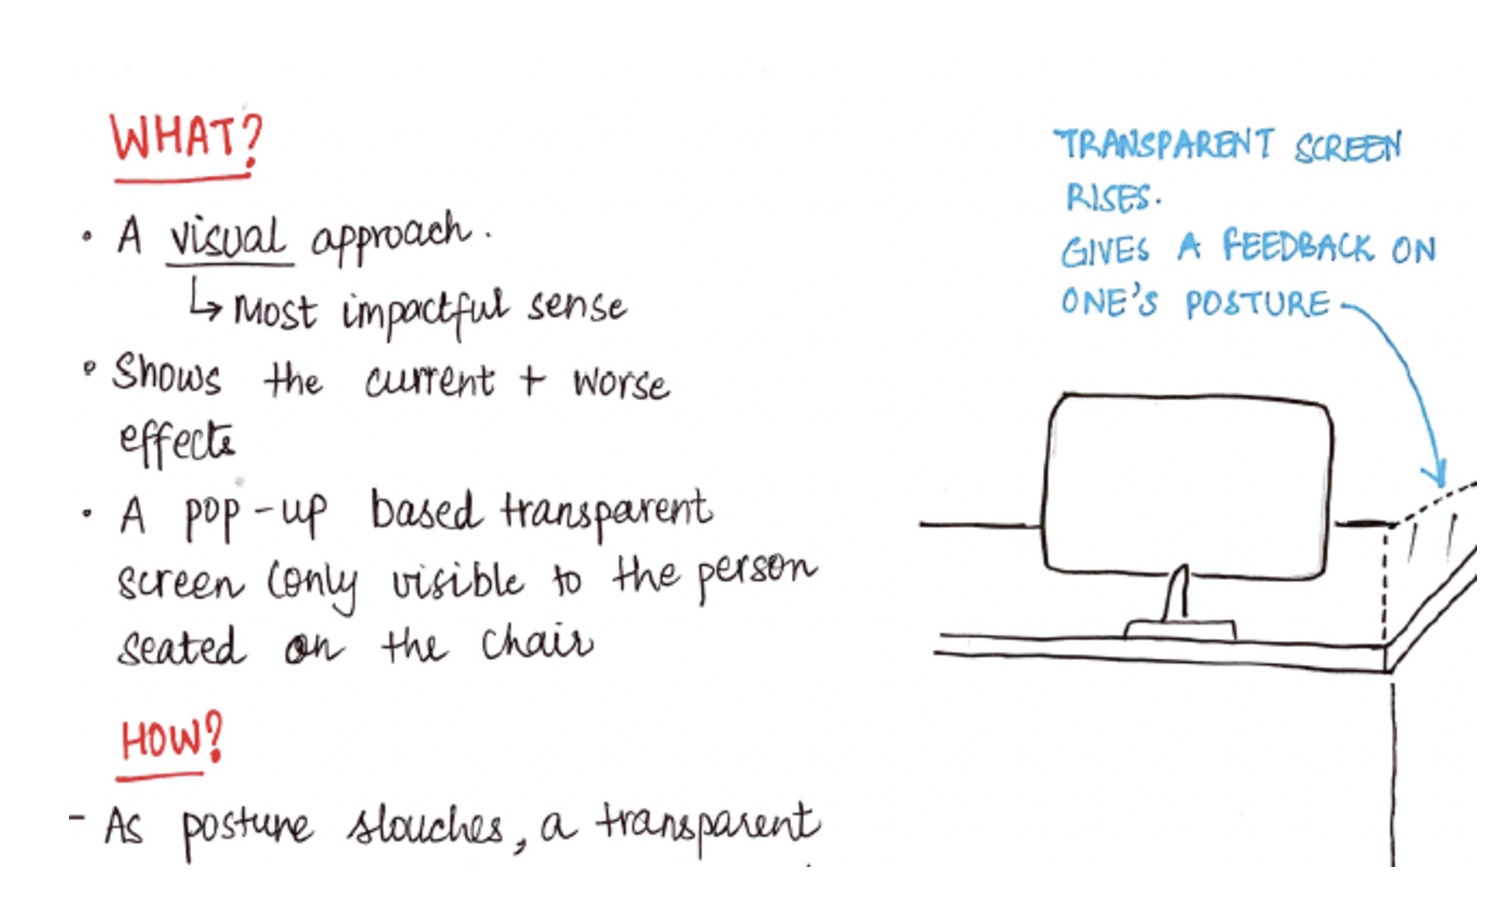 WHAT?
• A visual approach.
↳ Most impactful sense
• Shows the current + worse
effects
• A pop-up based transparent
screen (only visible to the person
seated on the chair
HOW?
- As posture slouches, a transparent
TRANSPARENT SCREEN
RISES.
GIVES A FEEDBACK ON
ONE'S POSTURE